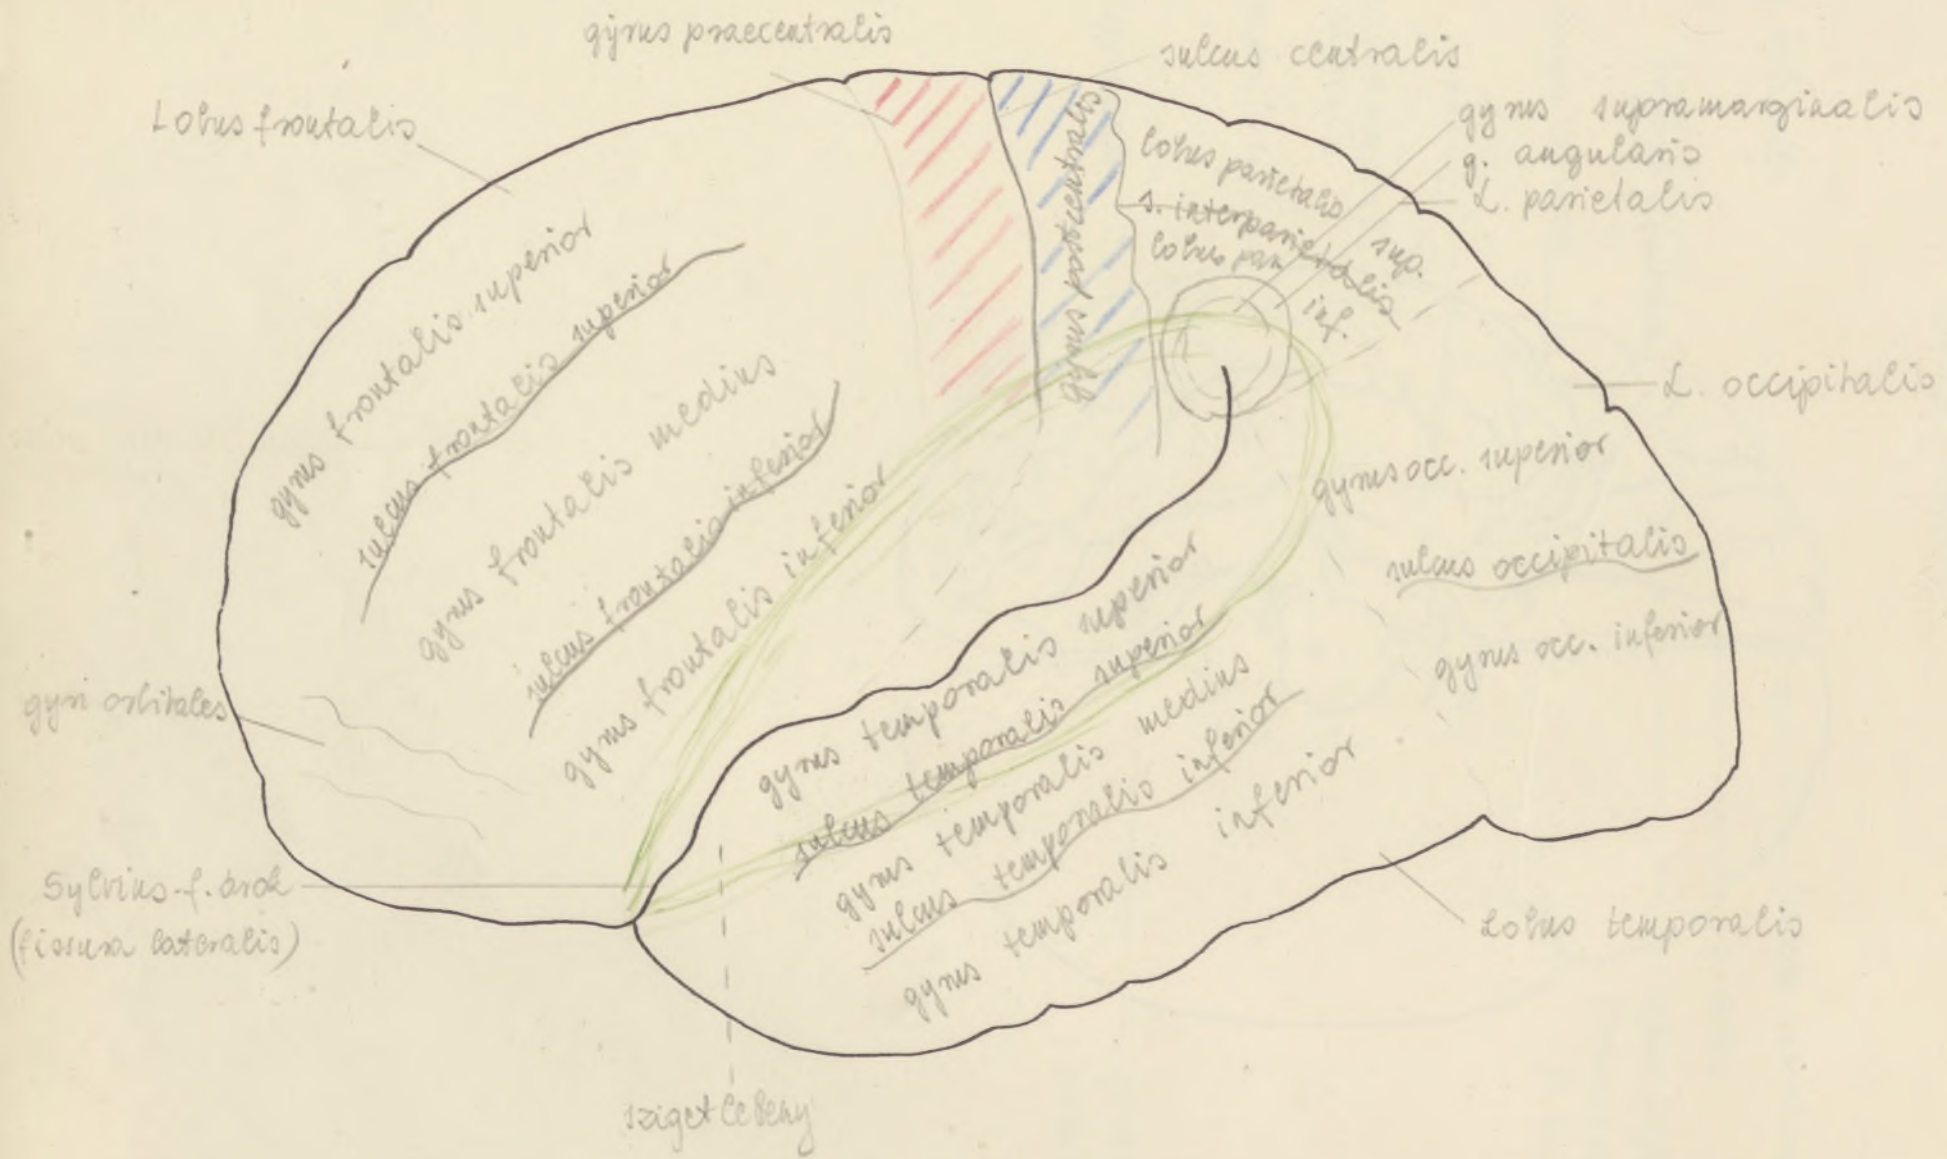 gyrus praecentralis
sulcus centralis
Lobus frontalis
gyrus supramarginalis
g. angularis
L. parietalis
gyrus postcentralis
lobus parietalis sup.
s. interparietalis
lobus par. inf.
L. occipitalis
gyrus frontalis superior
sulcus frontalis superior
gyrus frontalis medius
sulcus frontalis inferior
gyrus frontalis inferior
gyrus occ. superior
sulcus occipitalis
gyrus occ. inferior
gyri orbitales
gyrus temporalis superior
sulcus temporalis superior
gyrus temporalis medius
sulcus temporalis inferior
gyrus temporalis inferior
Sylvius-f. árok
(fissura lateralis)
Lobus temporalis
sziget lebeny